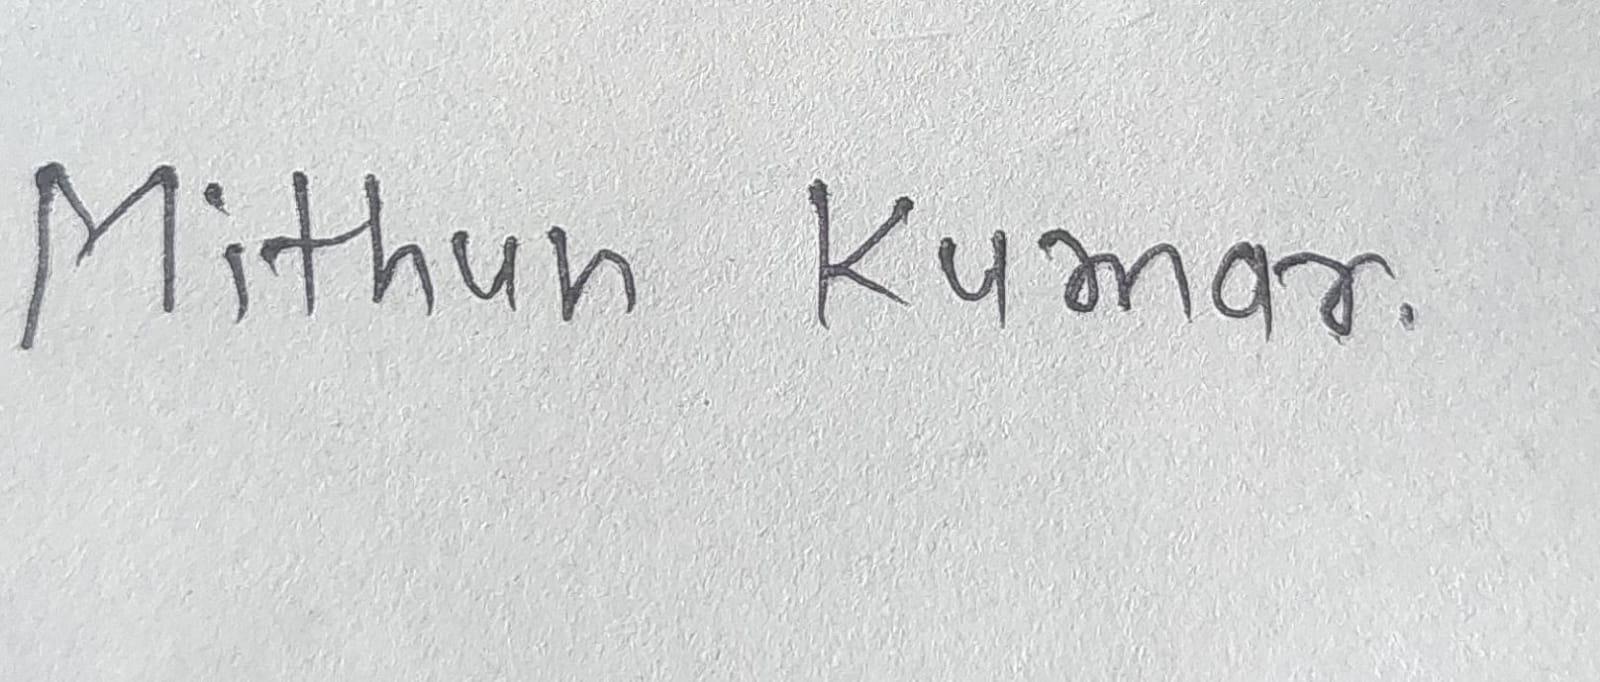 Mithun Kumar.